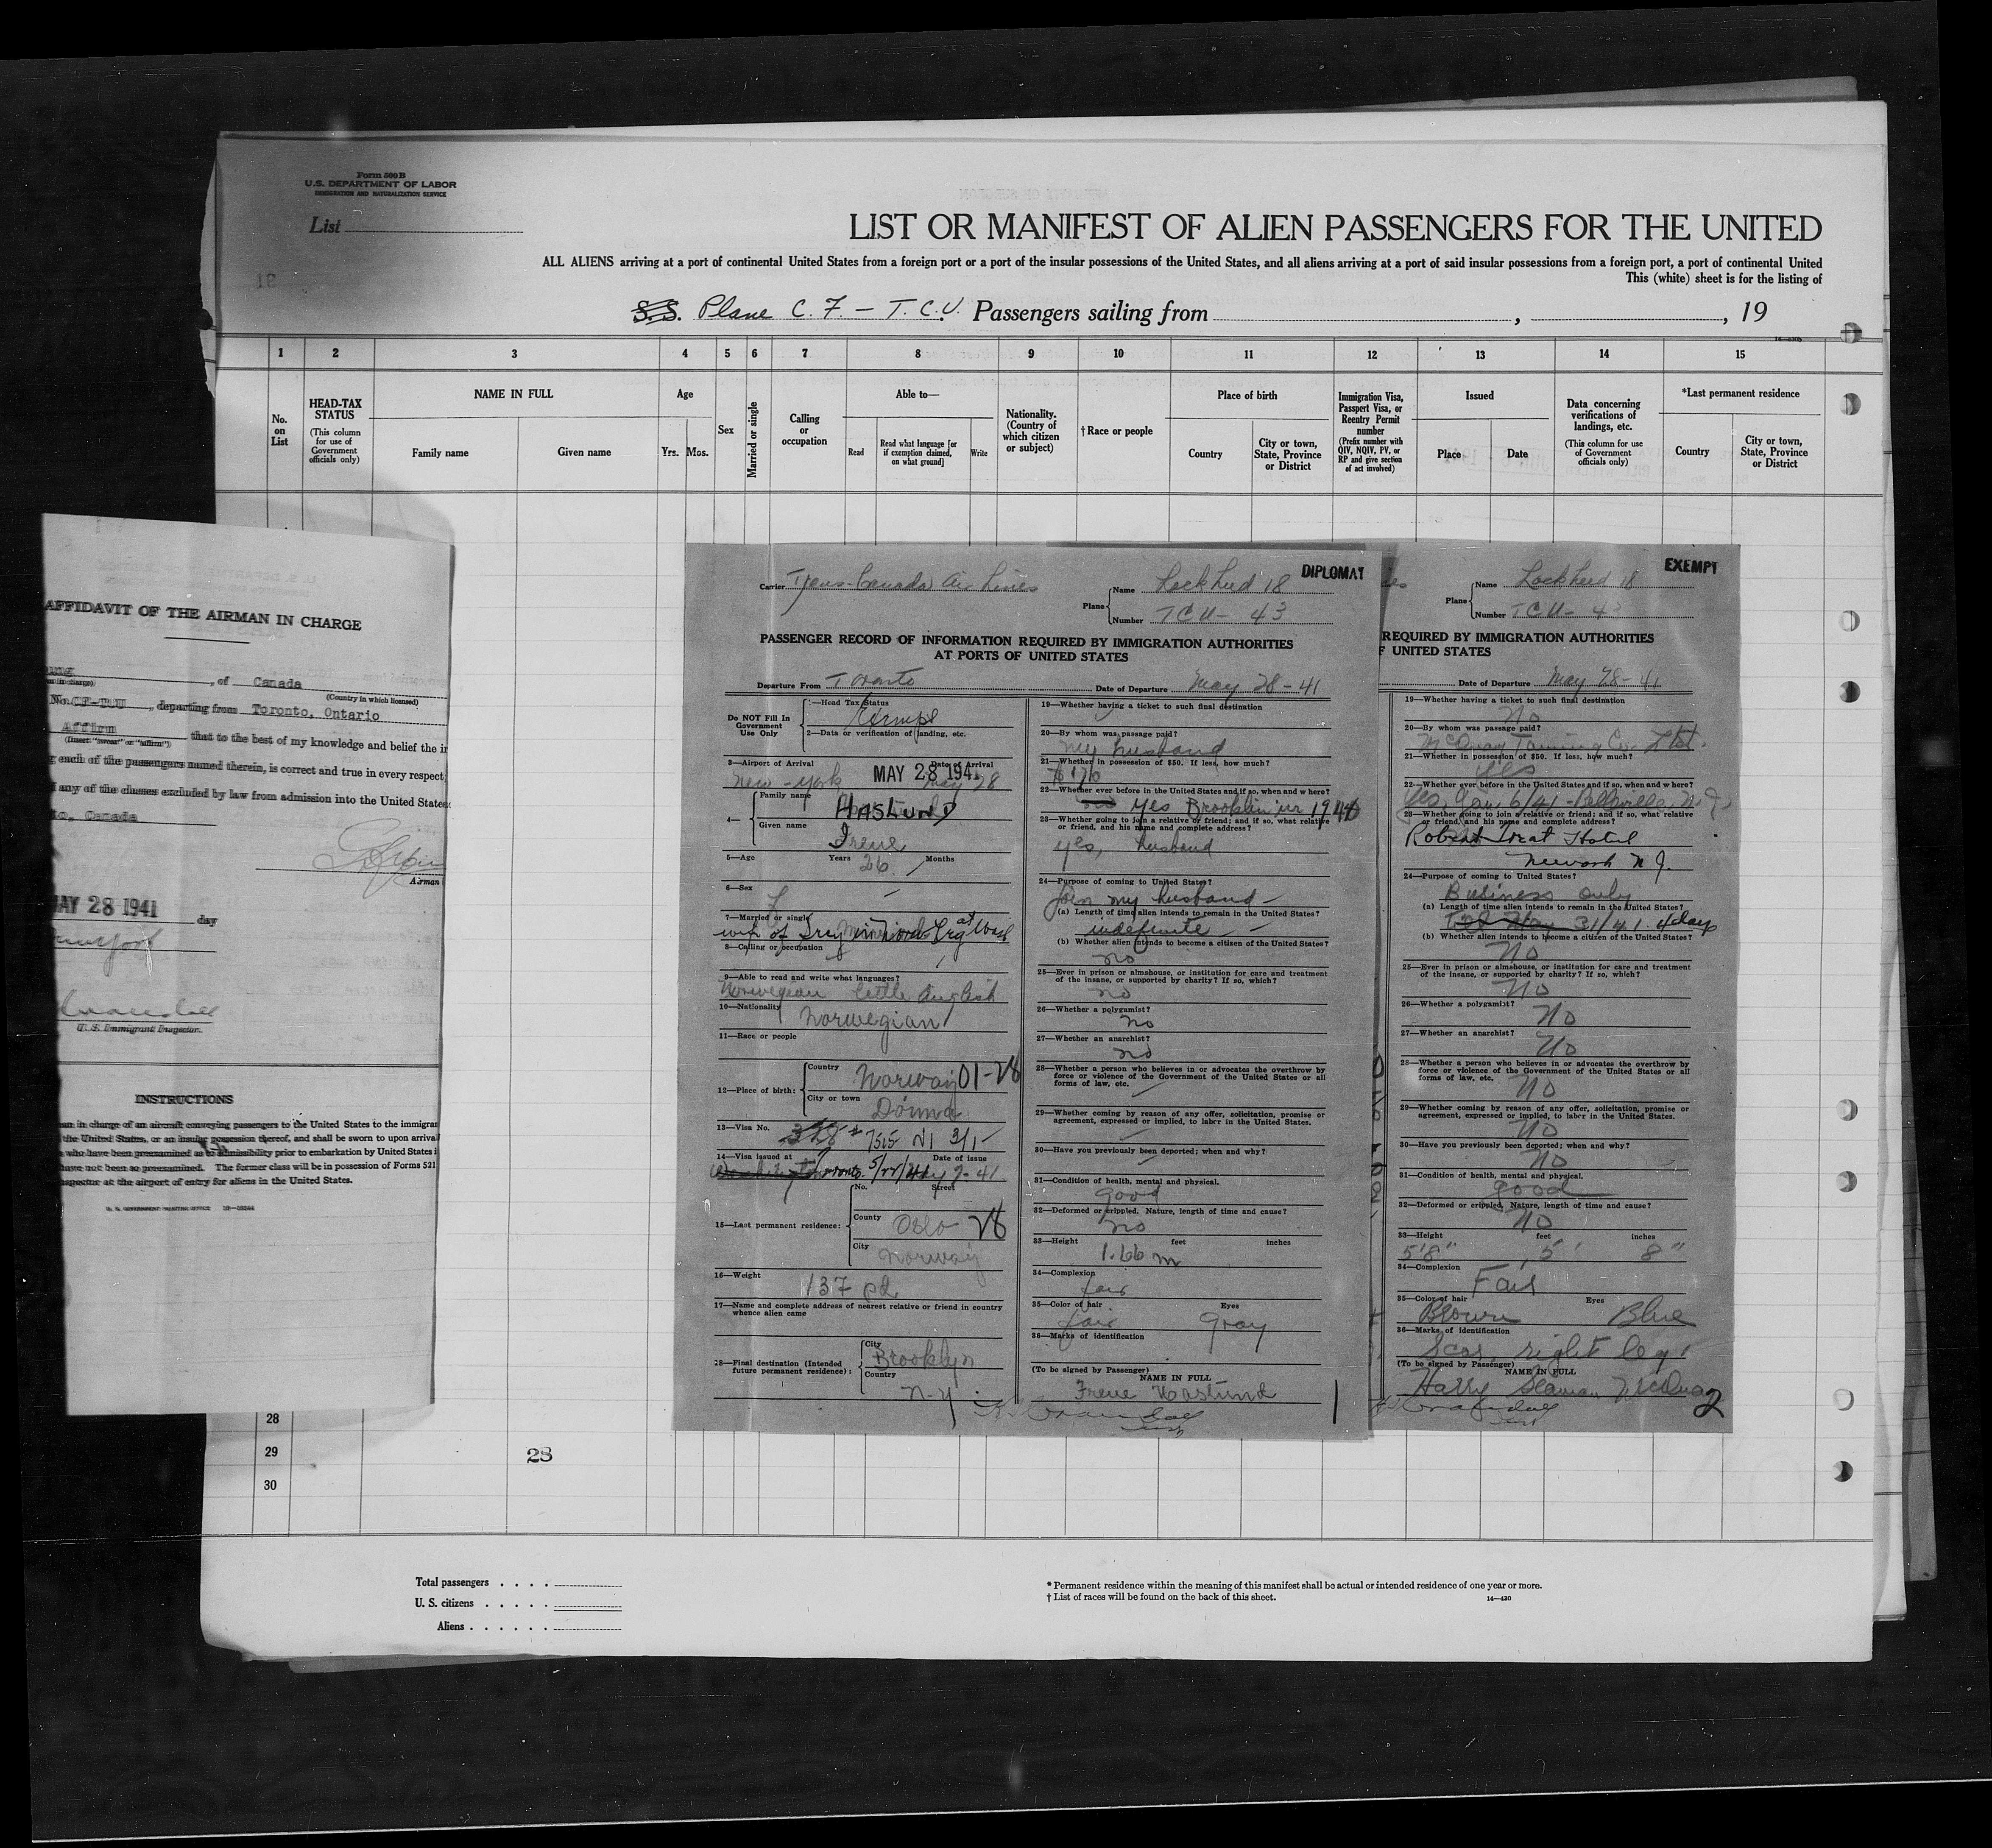 Form 500 B
U.S. DEPARTMENT OF LABOR
IMMIGRATION AND NATURALIZATION SERVICE
List
LIST OR MANIFEST OF ALIEN PASSENGERS FOR THE UNITED
ALL ALIENS arriving at a port of continental United States from a foreign port or a port of the insular possessions of the United States, and all aliens arriving at a port of said insular possessions from a foreign port, a port of continental United
This (white) sheet is for the listing of
S.S. Plane C. F. - T. C. U. Passengers sailing from , , 19
1 2 3 4 5 6 7 8 9 10 11 12 13 14 15
No. on List
HEAD-TAX STATUS
(This column for use of Government officials only)
NAME IN FULL
Family name Given name
Age
Yrs. Mos.
Sex
Married or single
Calling or occupation
Able to—
Read
Read what language [or if exemption claimed, on what ground]
Write
Nationality. (Country of which citizen or subject)
†Race or people
Place of birth
Country
City or town, State, Province or District
Immigration Visa, Passport Visa, or Reentry Permit number
(Prefix number with QIV, NQIV, PV, or RP and give section of act involved)
Issued
Place Date
Data concerning verifications of landings, etc.
(This column for use of Government officials only)
*Last permanent residence
Country
City or town, State, Province or District
AFFIDAVIT OF THE AIRMAN IN CHARGE
, of Canada
(Country in which licensed)
departing from Toronto, Ontario
Affirm that to the best of my knowledge and belief the
(Insert "swear" or "affirm")
each of the passengers named therein, is correct and true in every respect
any of the classes excluded by law from admission into the United States
Canada
Airman
MAY 28 1941 day
U. S. Immigrant Inspector.
INSTRUCTIONS
in charge of an aircraft conveying passengers to the United States to the
the United States, or an insular possession thereof, and shall be sworn to upon
who have been preexamined as to admissibility prior to embarkation by United States
have not been so preexamined. The former class will be in possession of Forms 521
at the airport of entry for aliens in the United States.
Carrier Trans-Canada Air Lines
DIPLOMAT
Plane Name Lockheed 18
Number TCU - 43
PASSENGER RECORD OF INFORMATION REQUIRED BY IMMIGRATION AUTHORITIES
AT PORTS OF UNITED STATES
Departure From Toronto Date of Departure May 28-41
Do NOT Fill In Government Use Only
1—Head Tax Status
Exempt
2—Data or verification of landing, etc.
3—Airport of Arrival Date of Arrival
New-York MAY 28 1941 May 28
4— Family name HASLUND
Given name Irene
5—Age Years 26 Months
6—Sex F
7—Married or single
wife of
8—Calling or occupation
9—Able to read and write what languages?
Norwegian little English
10—Nationality
Norwegian
11—Race or people
12—Place of birth: Country Norway 01-28
City or town Donna
13—Visa No. 328 # 7515
14—Visa issued at Date of issue
Washington Toronto 5/22/41
15—Last permanent residence: No. Street
County Oslo 28
City Norway
16—Weight 137 pd
17—Name and complete address of nearest relative or friend in country whence alien came
18—Final destination (Intended future permanent residence): City Brooklyn
Country N-Y
19—Whether having a ticket to such final destination
20—By whom was passage paid?
My husband
21—Whether in possession of $50. If less, how much?
22—Whether ever before in the United States and if so, when and where?
yes Brooklin 1940
23—Whether going to join a relative or friend; and if so, what relative or friend, and his name and complete address?
yes, husband
24—Purpose of coming to United States?
Join my husband
(a) Length of time alien intends to remain in the United States?
indefinite
(b) Whether alien intends to become a citizen of the United States?
no
25—Ever in prison or almshouse, or institution for care and treatment of the insane, or supported by charity? If so, which?
no
26—Whether a polygamist?
no
27—Whether an anarchist?
no
28—Whether a person who believes in or advocates the overthrow by force or violence of the Government of the United States or all forms of law, etc.
29—Whether coming by reason of any offer, solicitation, promise or agreement, expressed or implied, to labor in the United States.
30—Have you previously been deported; when and why?
31—Condition of health, mental and physical.
good
32—Deformed or crippled. Nature, length of time and cause?
no
33—Height feet inches
1.66 m
34—Complexion
fair
35—Color of hair Eyes
fair Gray
36—Marks of identification
(To be signed by Passenger)
NAME IN FULL
Irene Haslund
1
EXEMPT
Plane Name Lockheed 18
Number TCU - 43
REQUIRED BY IMMIGRATION AUTHORITIES
F UNITED STATES
Date of Departure May 28-41
19—Whether having a ticket to such final destination
No
20—By whom was passage paid?
McQuay Tanning Co. Ltd.
21—Whether in possession of $50. If less, how much?
yes
22—Whether ever before in the United States and if so, when and where?
Yes, Jan 6/41 - Belleville, N.J.
23—Whether going to join a relative or friend; and if so, what relative or friend, and his name and complete address?
Robert Treat Hotel
Newark N J.
24—Purpose of coming to United States?
Business only
(a) Length of time alien intends to remain in the United States?
May 31/41. 4 days
(b) Whether alien intends to become a citizen of the United States?
No
25—Ever in prison or almshouse, or institution for care and treatment of the insane, or supported by charity? If so, which?
No
26—Whether a polygamist?
No
27—Whether an anarchist?
No
28—Whether a person who believes in or advocates the overthrow by force or violence of the Government of the United States or all forms of law, etc.
No
29—Whether coming by reason of any offer, solicitation, promise or agreement, expressed or implied, to labor in the United States.
No
30—Have you previously been deported; when and why?
No
31—Condition of health, mental and physical.
good
32—Deformed or crippled. Nature, length of time and cause?
No
33—Height feet inches
5'8" 5' 8"
34—Complexion
Fair
35—Color of hair Eyes
Brown Blue
36—Marks of identification
Scar right leg
(To be signed by Passenger)
NAME IN FULL
Harry Seaman McQuay
2
28
29 28
30
Total passengers . . . .
U. S. citizens . . . . .
Aliens . . . . . .
* Permanent residence within the meaning of this manifest shall be actual or intended residence of one year or more.
† List of races will be found on the back of this sheet.
14—430